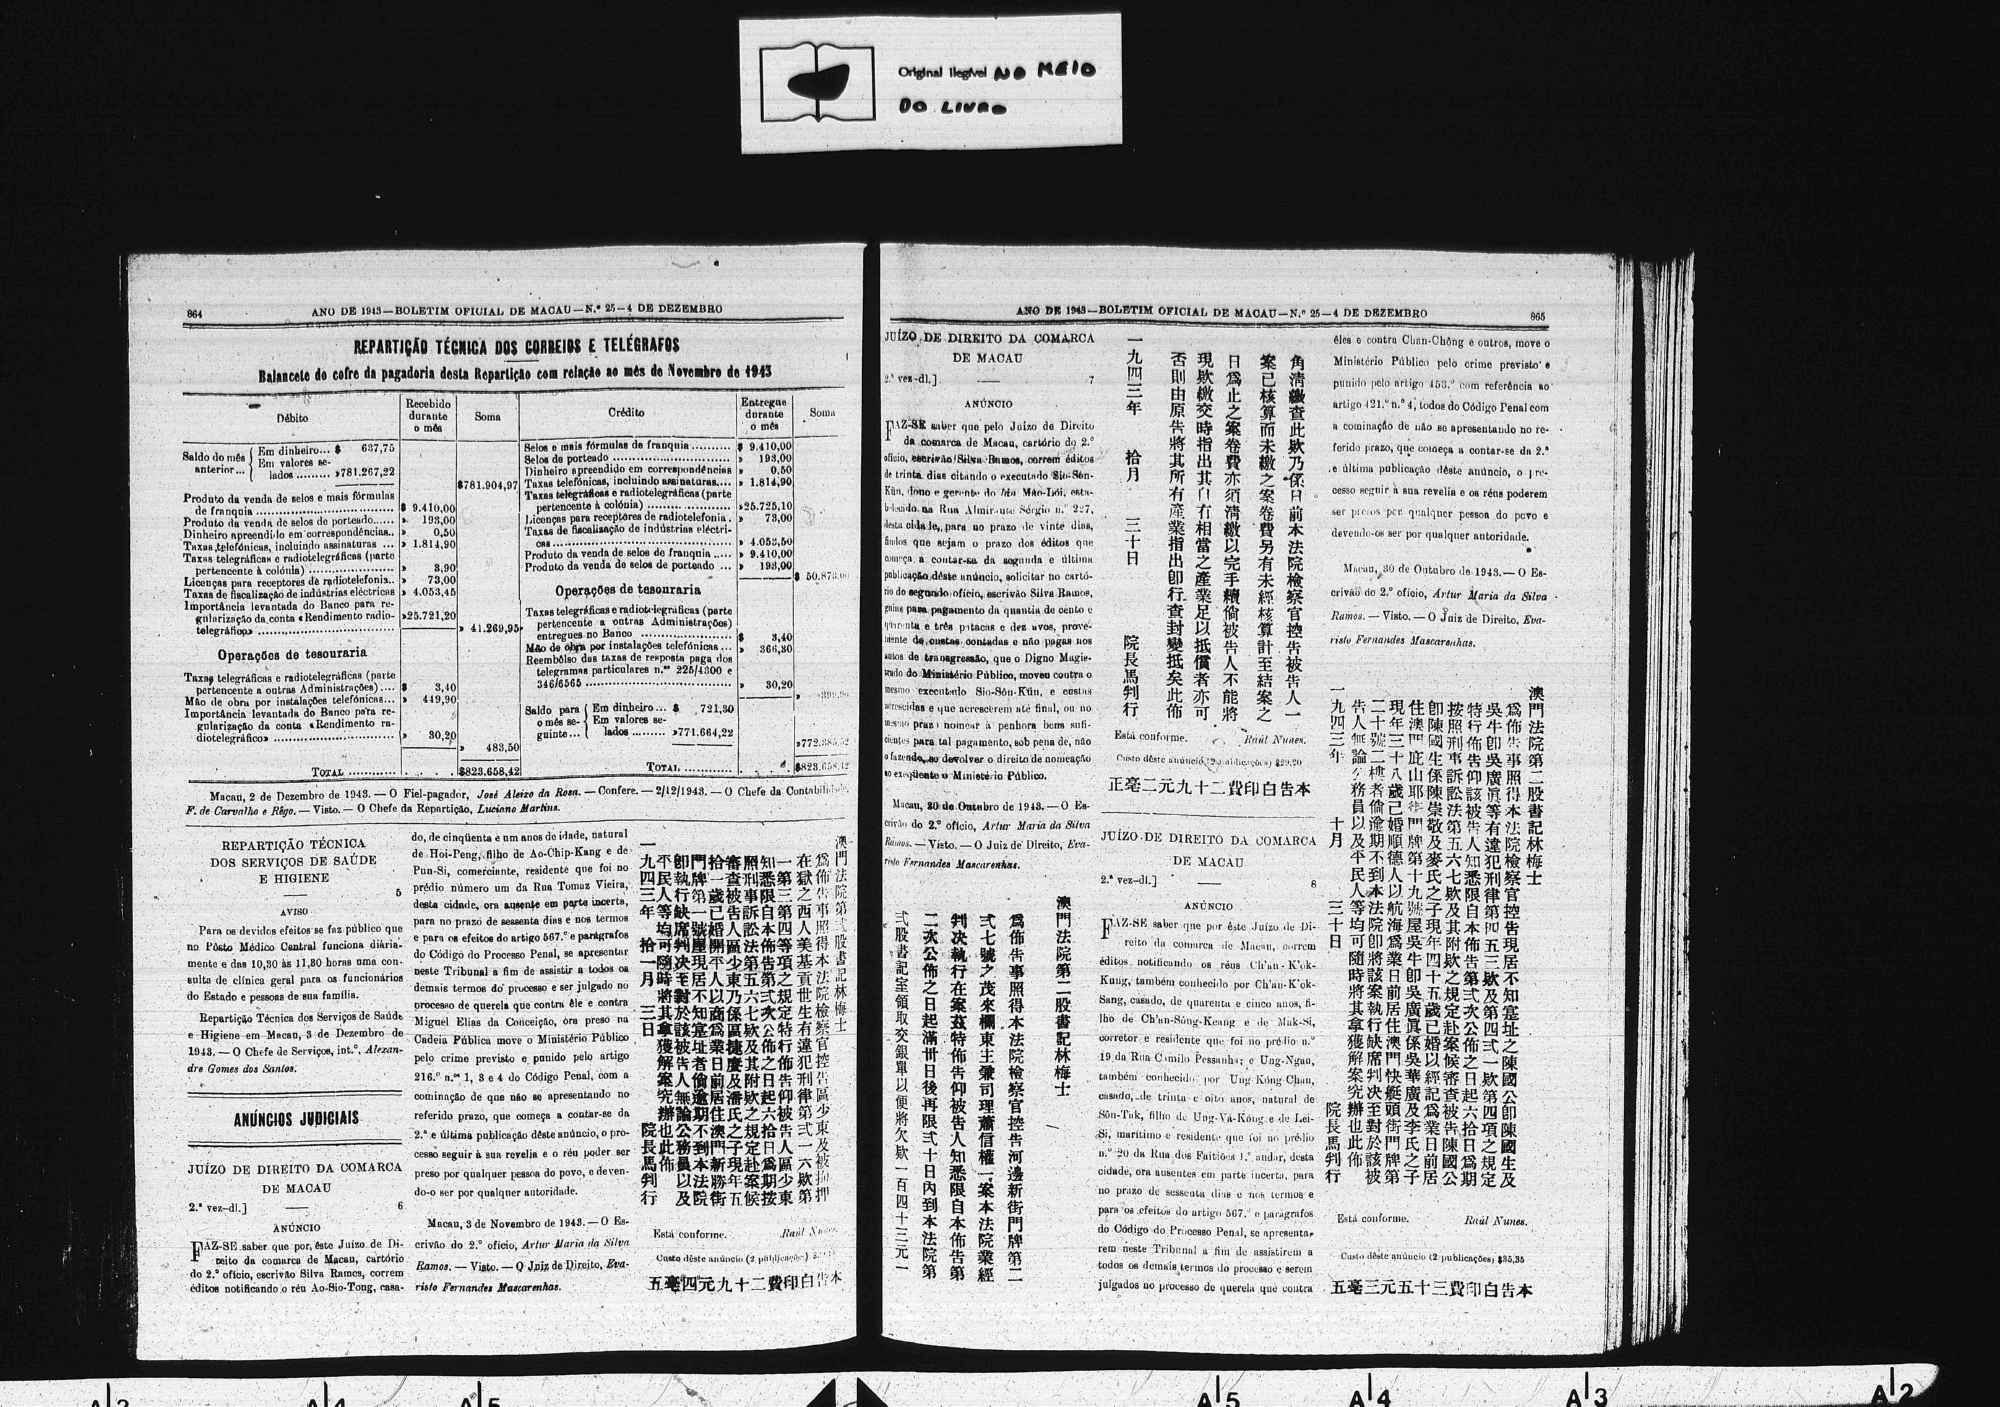 Original Ilegível NO MEIO
DO LIVRO
864
ANO DE 1943—BOLETIM OFICIAL DE MACAU—N.º 25—4 DE DEZEMBRO
REPARTIÇÃO TÉCNICA DOS CORREIOS E TELÉGRAFOS
Balancete do cofre da pagadoria desta Repartição com relação ao mês de Novembro de 1943
Débito
Recebido durante o mês
Soma
Crédito
Entregue durante o mês
Soma
Saldo do mês anterior...
Em dinheiro... $ 637,75
Em valores selados ......... »781.267,22
$781.904,97
Produto da venda de selos e mais fórmulas
de franquia ................................ $ 9.410,00
Produto da venda de selos de porteado...... » 193,00
Dinheiro apreendido em correspondências.. » 0,50
Taxas telefónicas, incluindo assinaturas ... » 1.814,90
Taxas telegráficas e radiotelegráficas (parte
pertencente à colónia) ..................... » 3,90
Licenças para receptores de radiotelefonia.. » 73,00
Taxas de fiscalização de indústrias eléctricas » 4.053,45
Importância levantada do Banco para re-
gularização da conta «Rendimento radio-
telegráfico» ................................ »25.721,20
» 41.269,95
Operações de tesouraria
Taxas telegráficas e radiotelegráficas (parte
pertencente a outras Administrações).... $ 3,40
Mão de obra por instalações telefónicas... » 449,90
Importância levantada do Banco para re-
gularização da conta «Rendimento ra-
diotelegráfico» ............................ » 30,20
» 483,50
TOTAL ............ $823.658,42
Selos e mais fórmulas de franquia .......... $ 9.410,00
Selos de porteado ............................ » 193,00
Dinheiro apreendido em correspondências » 0,50
Taxas telefónicas, incluindo assinaturas.... » 1.814,90
Taxas telegráficas e radiotelegráficas (parte
pertencente à colónia) .................... »25.725,10
Licenças para receptores de radiotelefonia . » 73,00
Taxas de fiscalização de indústrias eléctri-
cas ......................................... » 4.053,50
Produto da venda de selos de franquia ..... » 9.410,00
Produto da venda de selos de porteado ... » 193,00
$ 50.873,00
Operações de tesouraria
Taxas telegráficas e radiotelegráficas (parte
pertencente a outras Administrações)
entregues no Banco ...................... $ 3,40
Mão de obra por instalações telefónicas... » 366,30
Reembôlso das taxas de resposta paga dos
telegramas particulares n.os 225/4300 e
346/6565 ................................... » 30,20
Saldo para o mês seguinte...
Em dinheiro... $ 721,30
Em valores selados ......... »771.664,22
TOTAL ........... $823.658,42
Macau, 2 de Dezembro de 1943. — O Fiel-pagador, José Aleixo da Rosa. — Confere. — 2/12/1943. — O Chefe da Contabilidade,
F. de Carvalho e Rêgo. — Visto. — O Chefe da Repartição, Luciano Martins.
REPARTIÇÃO TÉCNICA
DOS SERVIÇOS DE SAÚDE
E HIGIENE
5
AVISO
Para os devidos efeitos se faz público que
no Pôsto Médico Central funciona diària-
mente e das 10,30 às 11,30 horas uma con-
sulta de clínica geral para os funcionários
do Estado e pessoas de sua família.
Repartição Técnica dos Serviços de Saúde
e Higiene em Macau, 3 de Dezembro de
1943. — O Chefe de Serviços, int.º, Alexan-
dre Gomes dos Santos.
ANÚNCIOS JUDICIAIS
JUÍZO DE DIREITO DA COMARCA
DE MACAU
2.ª vez–dl.]
6
ANÚNCIO
FAZ-SE saber que por êste Juízo de Di-
reito da comarca de Macau, cartório
do 2.º ofício, escrivão Silva Ramos, correm
éditos notificando o réu Ao-Sio-Tong, casa-
do, de cinqüenta e um anos de idade, natural
de Hoi-Peng, filho de Ao-Chip-Kang e de
Pun-Si, comerciante, residente que foi no
prédio número um da Rua Tomaz Vieira,
desta cidade, ora ausente em parte incerta,
para no prazo de sessenta dias e nos termos
e para os efeitos do artigo 567.º e parágrafos
do Código do Processo Penal, se apresentar
neste Tribunal a fim de assistir a todos os
demais termos do processo e ser julgado no
processo de querela que contra êle e contra
Miguel Elias da Conceição, óra preso na
Cadeia Pública move o Ministério Público
pelo crime previsto e punido pelo artigo
216.º n.os 1, 3 e 4 do Código Penal, com a
cominação de que não se apresentando no
referido prazo, que começa a contar-se da
2.ª e última publicação dêste anúncio, o pro-
cesso seguir à sua revelia e o réu poder ser
preso por qualquer pessoa do povo, e deven-
do-o ser por qualquer autoridade.
Macau, 3 de Novembro de 1943. — O Es-
crivão do 2.º ofício, Artur Maria da Silva
Ramos. — Visto. — O Juiz de Direito, Eva-
risto Fernandes Mascarenhas.
澳門法院第弍股書記林梅士
爲佈告事照得本法院檢察官控告區少東及被拘押
在獄之西人美基貢世生有違犯刑律第弍一六欵第
一第三第四等項之規定特行佈告仰被告人區少東
知悉限自本佈告第弍次公佈之日起六拾日爲期按
照刑事訴訟法第五六七欵及其附欵之規定赴案候
審查被告人區少東乃係區捷慶及潘氏之子現年五
拾一歲已婚開平人以商爲業日前居住澳門新勝街
門牌第一號屋現居不知寔址者倘逾期不到本法院
卽執行缺席判决至對於該被告人無論公務員以及
平民人等均可隨時將其拿獲解案究辦也此佈
一九四三年 拾一月 三日 院長馬判行
Está conforme.
Raúl Nunes.
Custo dêste anúncio (2 publicações)
本告白印費二十九元四毫五
ANO DE 1943—BOLETIM OFICIAL DE MACAU—N.º 25—4 DE DEZEMBRO
865
JUÍZO DE DIREITO DA COMARCA
DE MACAU
2.ª vez–dl.]
7
ANÚNCIO
FAZ-SE saber que pelo Juízo de Direito
da comarca de Macau, cartório do 2.º
ofício, escrivão Silva Ramos, correm éditos
de trinta dias citando o executado Sio-Sôn-
Kün, dono e gerente do Mao-Lói, esta-
belecido na Rua Almirante Sérgio n.º 227,
desta cidade, para no prazo de vinte dias,
findos que sejam o prazo dos éditos que
começa a contar-se da segunda e última
publicação dêste anúncio, solicitar no cartó-
rio do segundo ofício, escrivão Silva Ramos,
guias para pagamento da quantia de cento e
quarenta e três patacas e dez avos, prove-
niente de custas contadas e não pagas nos
autos de transgressão, que o Digno Magis-
trado do Ministério Público, moveu contra o
mesmo executado Sio-Sôn-Kün, e custas
acrescidas e que acrescerem até final, ou no
mesmo prazo nomear à penhora bens sufi-
cientes para tal pagamento, sob pena de, não
o fazendo, se devolver o direito de nomeação
ao exeqüente o Ministério Público.
Macau, 30 de Outubro de 1943. — O Es-
crivão do 2.º ofício, Artur Maria da Silva
Ramos. — Visto. — O Juiz de Direito, Eva-
risto Fernandes Mascarenhas.
澳門法院第二股書記林梅士
爲佈告事照得本法院檢察官控告河邊新街門牌第二
弍七號之茂來欄東主兼司理蕭信權一案本法院業經
判决執行在案茲特佈告仰被告人知悉限自本佈告第
二次公佈之日起滿卅日後再限弍十日內到本法院第
弍股書記室領取交銀單以便將欠欵一百四十三元一
角清繳查此欵乃係日前本法院檢察官控告被告人一
案已核算而未繳之案卷費另有未經核算計至結案之
日爲止之案卷費亦須清繳以完手續倘被告人不能將
現欵繳交時指出其自有相當之產業足以抵償者亦可
否則由原告將其所有產業指出卽行查封變抵矣此佈
一九四三年 拾月 三十日 院長馬判行
Está conforme.
Raúl Nunes.
Custo dêste anúncio (2 publicações) $29,20
本告白印費二十九元二毫正
JUÍZO DE DIREITO DA COMARCA
DE MACAU
2.ª vez–dl.]
8
ANÚNCIO
FAZ-SE saber que por êste Juízo de Di-
reito da comarca de Macau, correm
éditos notificando os réus Ch'an-K'ok-
Kung, também conhecido por Ch'an-K'ok-
Sang, casado, de quarenta e cinco anos, fi-
lho de Ch'an-Sông-Keang e de Mak-Si,
corretor e residente que foi no prédio n.º
19 da Rua Camilo Pessanha; e Ung-Ngau,
também conhecido por Ung-Kóng-Chan,
casado, de trinta e oito anos, natural de
Sôn-Tak, filho de Ung-Vá-Kóng e de Lei-
Si, marítimo e residente que foi no prédio
n.º 20 da Rua dos Faitiões 1.º andar, desta
cidade, ora ausentes em parte incerta, para
no prazo de sessenta dias e nos termos e
para os efeitos do artigo 567.º e parágrafos
do Código do Processo Penal, se apresenta-
rem neste Tribunal a fim de assistirem a
todos os demais termos do processo e serem
julgados no processo de querela que contra
êles e contra Chan-Chông e outros, move o
Ministério Público pelo crime previsto e
punido pelo artigo 453.º com referência ao
artigo 421.º n.º 4, todos do Código Penal com
a cominação de não se apresentando no re-
ferido prazo, que começa a contar-se da 2.ª
e última publicação dêste anúncio, o pro-
cesso seguir à sua revelia e os réus poderem
ser presos por qualquer pessoa do povo e
devendo-os ser por qualquer autoridade.
Macau, 30 de Outubro de 1943. — O Es-
crivão do 2.º ofício, Artur Maria da Silva
Ramos. — Visto. — O Juiz de Direito, Eva-
risto Fernandes Mascarenhas.
澳門法院第二股書記林梅士
爲佈告事照得本法院檢察官控告現居不知寔址之陳國公卽陳國生及
吳牛卽吳廣眞等有違犯刑律第四五三欵及第四弍一欵第四項之規定
特行佈告仰該被告人知悉限自本佈告第弍次公佈之日起六拾日爲期
按照刑事訴訟法第五六七欵及其附欵之規定赴案候審查被告陳國公
卽陳國生係陳崇敬及麥氏之子現年四十五歲已婚以經記爲業日前居
住澳門庇山耶街門牌第十九號屋吳牛卽吳廣眞係吳華廣及李氏之子
現年三十八歲已婚順德人以航海爲業日前居住澳門快艇頭街門牌第
二十號二樓者倘逾期不到本法院卽將該案執行缺席判决至對於該被
告人無論公務員以及平民人等均可隨時將其拿獲解案究辦也此佈
一九四三年 十月 三十日 院長馬判行
Está conforme.
Raúl Nunes.
Custo dêste anúncio (2 publicações) $35,35
本告白印費三十五元三毫五
A 3
A 4
A 5
A 5
A 4
A 3
A 2